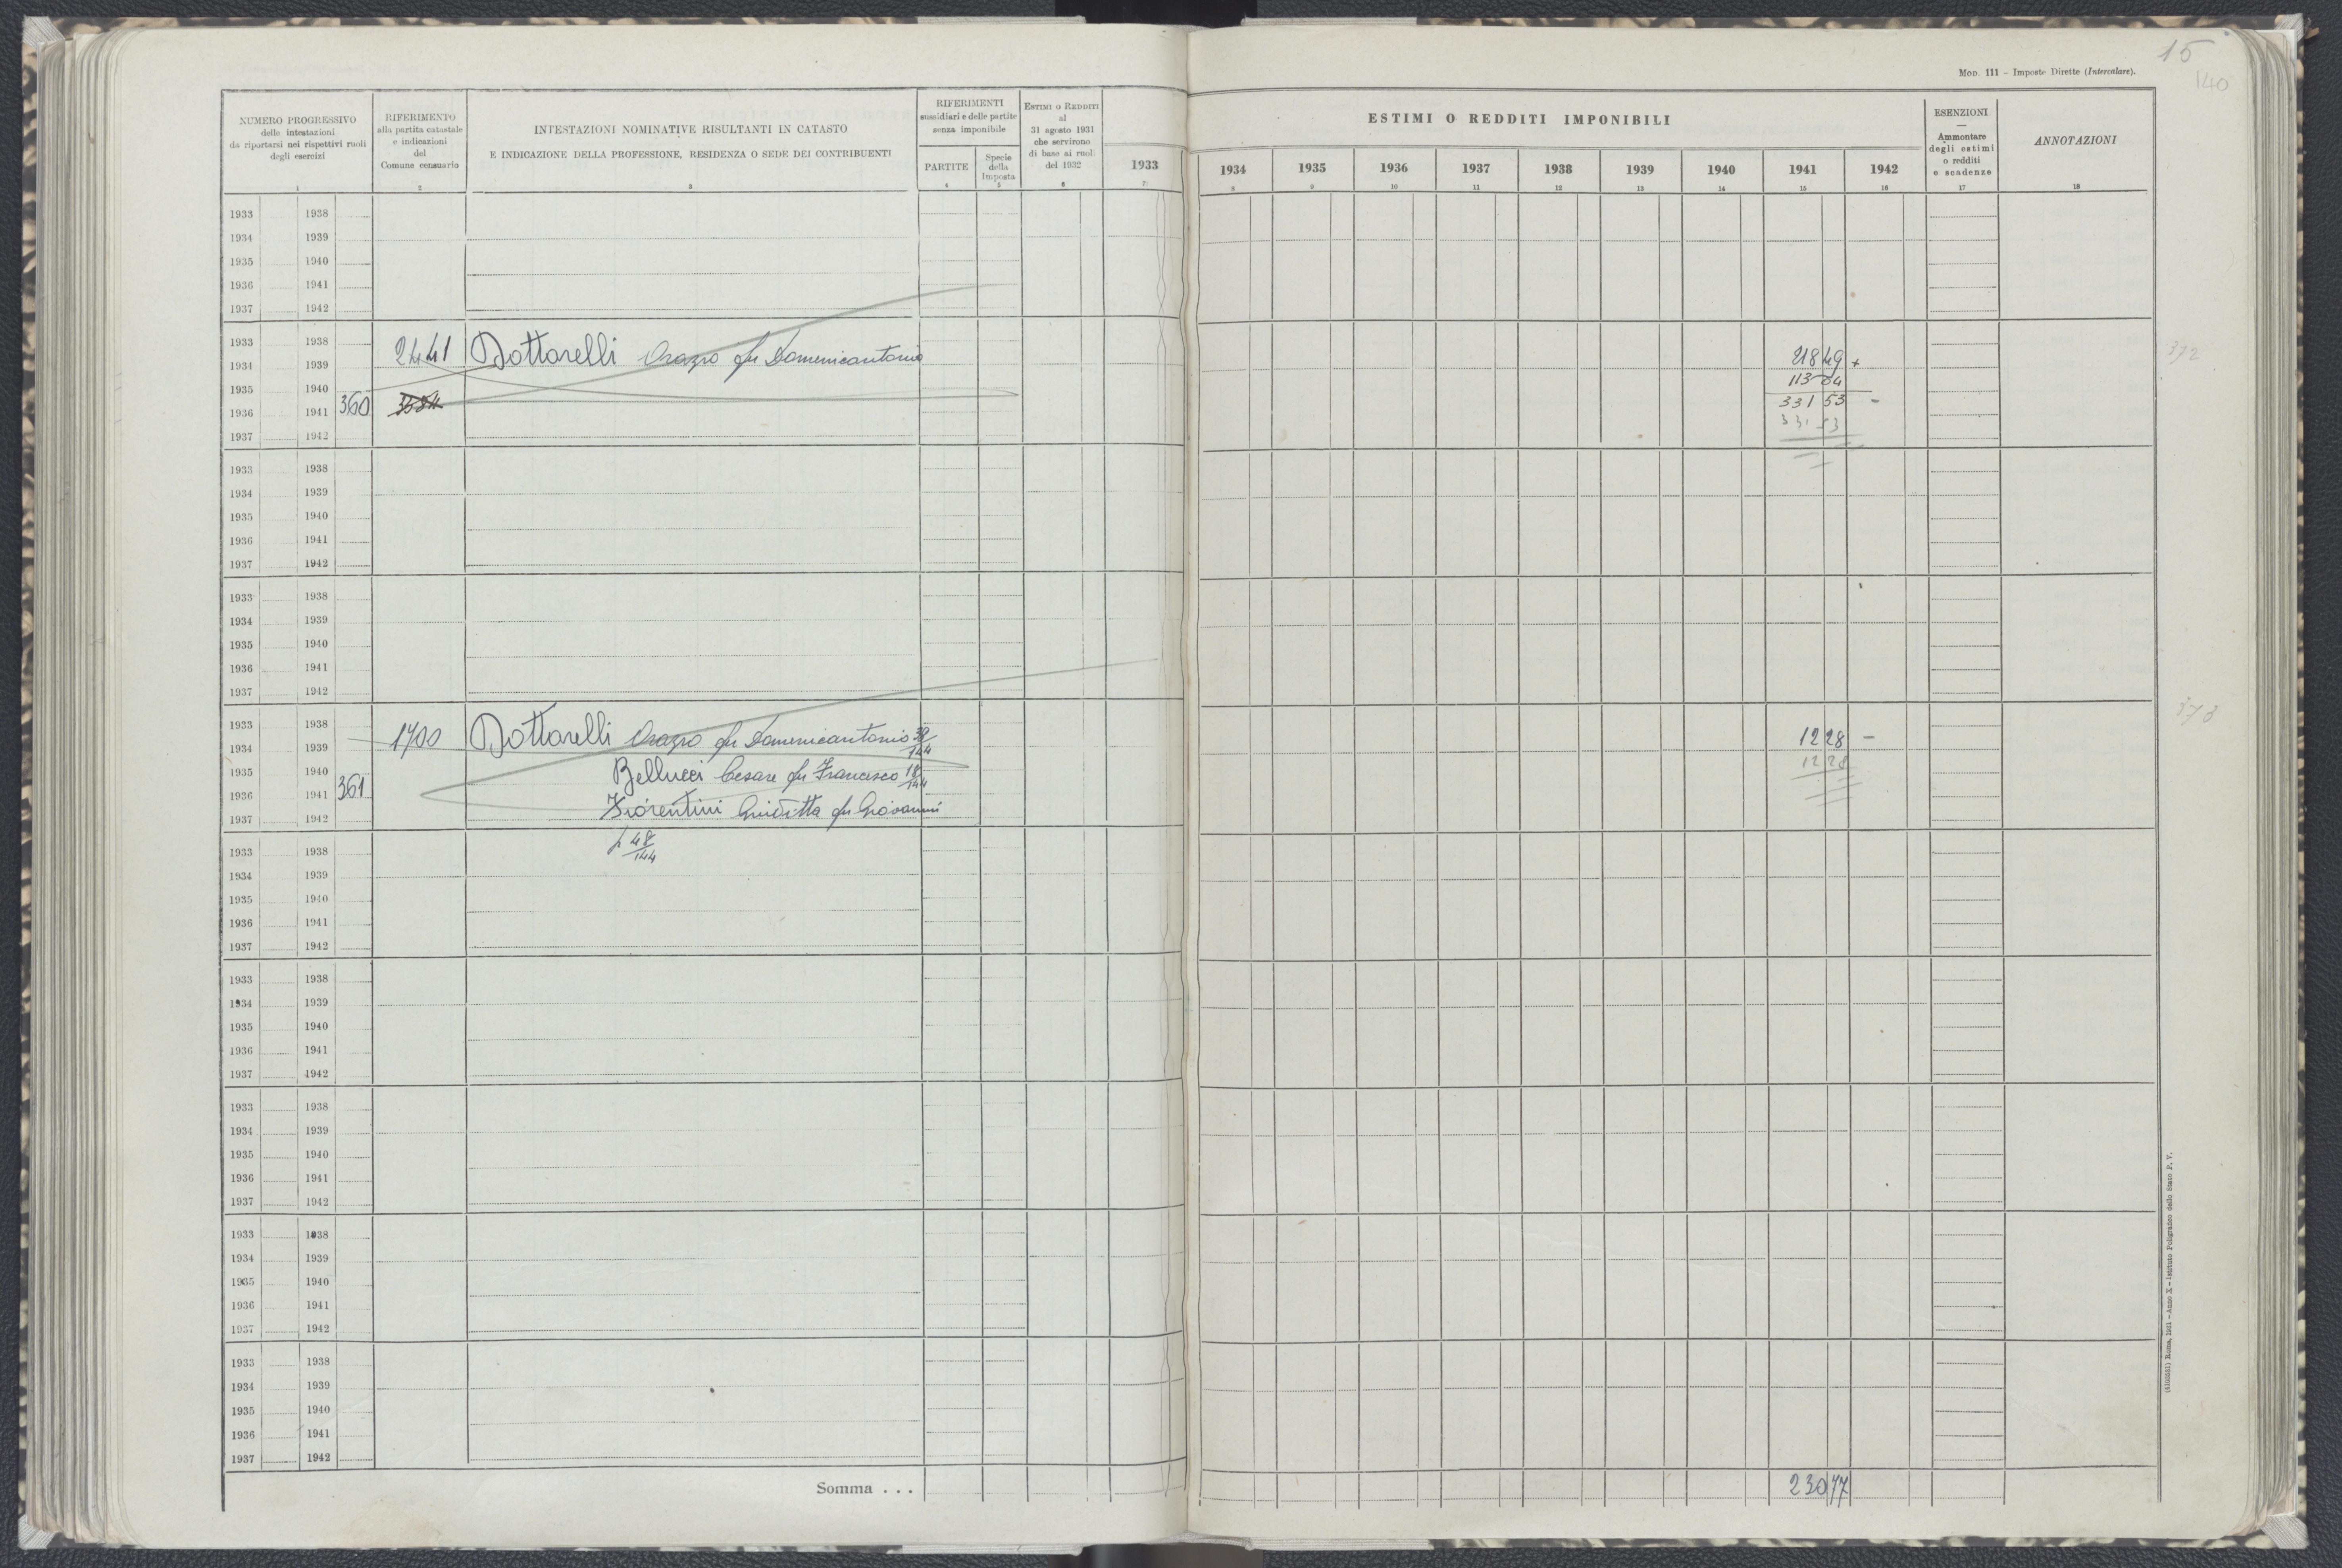 15
140
Mod. 111 - Imposte Dirette (Intercalare).
NUMERO PROGRESSIVO
delle intestazioni
da riportarsi nei rispettivi ruoli
degli esercizi
1
RIFERIMENTO
alla partita catastale
e indicazioni
del
Comune censuario
2
INTESTAZIONI NOMINATIVE RISULTANTI IN CATASTO
E INDICAZIONE DELLA PROFESSIONE, RESIDENZA O SEDE DEI CONTRIBUENTI
3
RIFERIMENTI
sussidiari e delle partite
senza imponibile
PARTITE
4
Specie
della
Imposta
5
Estimi o Redditi
al
31 agosto 1931
che servirono
di base ai ruoli
del 1932
6
1933
7
ESTIMI O REDDITI IMPONIBILI
1934 1935 1936 1937 1938 1939 1940 1941 1942
8 9 10 11 12 13 14 15 16
ESENZIONI
—
Ammontare
degli estimi
o redditi
e scadenze
17
ANNOTAZIONI
18
1933 1938
1934 1939
1935 1940
1936 1941
1937 1942
1933 1938
1934 1939 2441 Dottarelli Orazio fu Domenicantonio 218 49 +
372
1935 1940 113 04
1936 1941 360 331 53 -
331 53
1937 1942
1933 1938
1934 1939
1935 1940
1936 1941
1937 1942
1933 1938
1934 1939
1935 1940
1936 1941
1937 1942
373
1933 1938
1934 1939 1700 Dottarelli Orazio fu Domenicantonio 39/144 12 28 -
1935 1940 Bellucci Cesare fu Francesco 18/144 12 28
1936 1941 361
1937 1942 Fiorentini Giuditta fu Giovanni
p 48/144
1933 1938
1934 1939
1935 1940
1936 1941
1937 1942
1933 1938
1934 1939
1935 1940
1936 1941
1937 1942
1933 1938
1934 1939
1935 1940
1936 1941
1937 1942
1933 1938
1934 1939
1935 1940
1936 1941
1937 1942
1933 1938
1934 1939
1935 1940
1936 1941
1937 1942
Somma . . . 230 77
(4103331) Roma, 1931 - Anno X - Istituto Poligrafico dello Stato P. V.